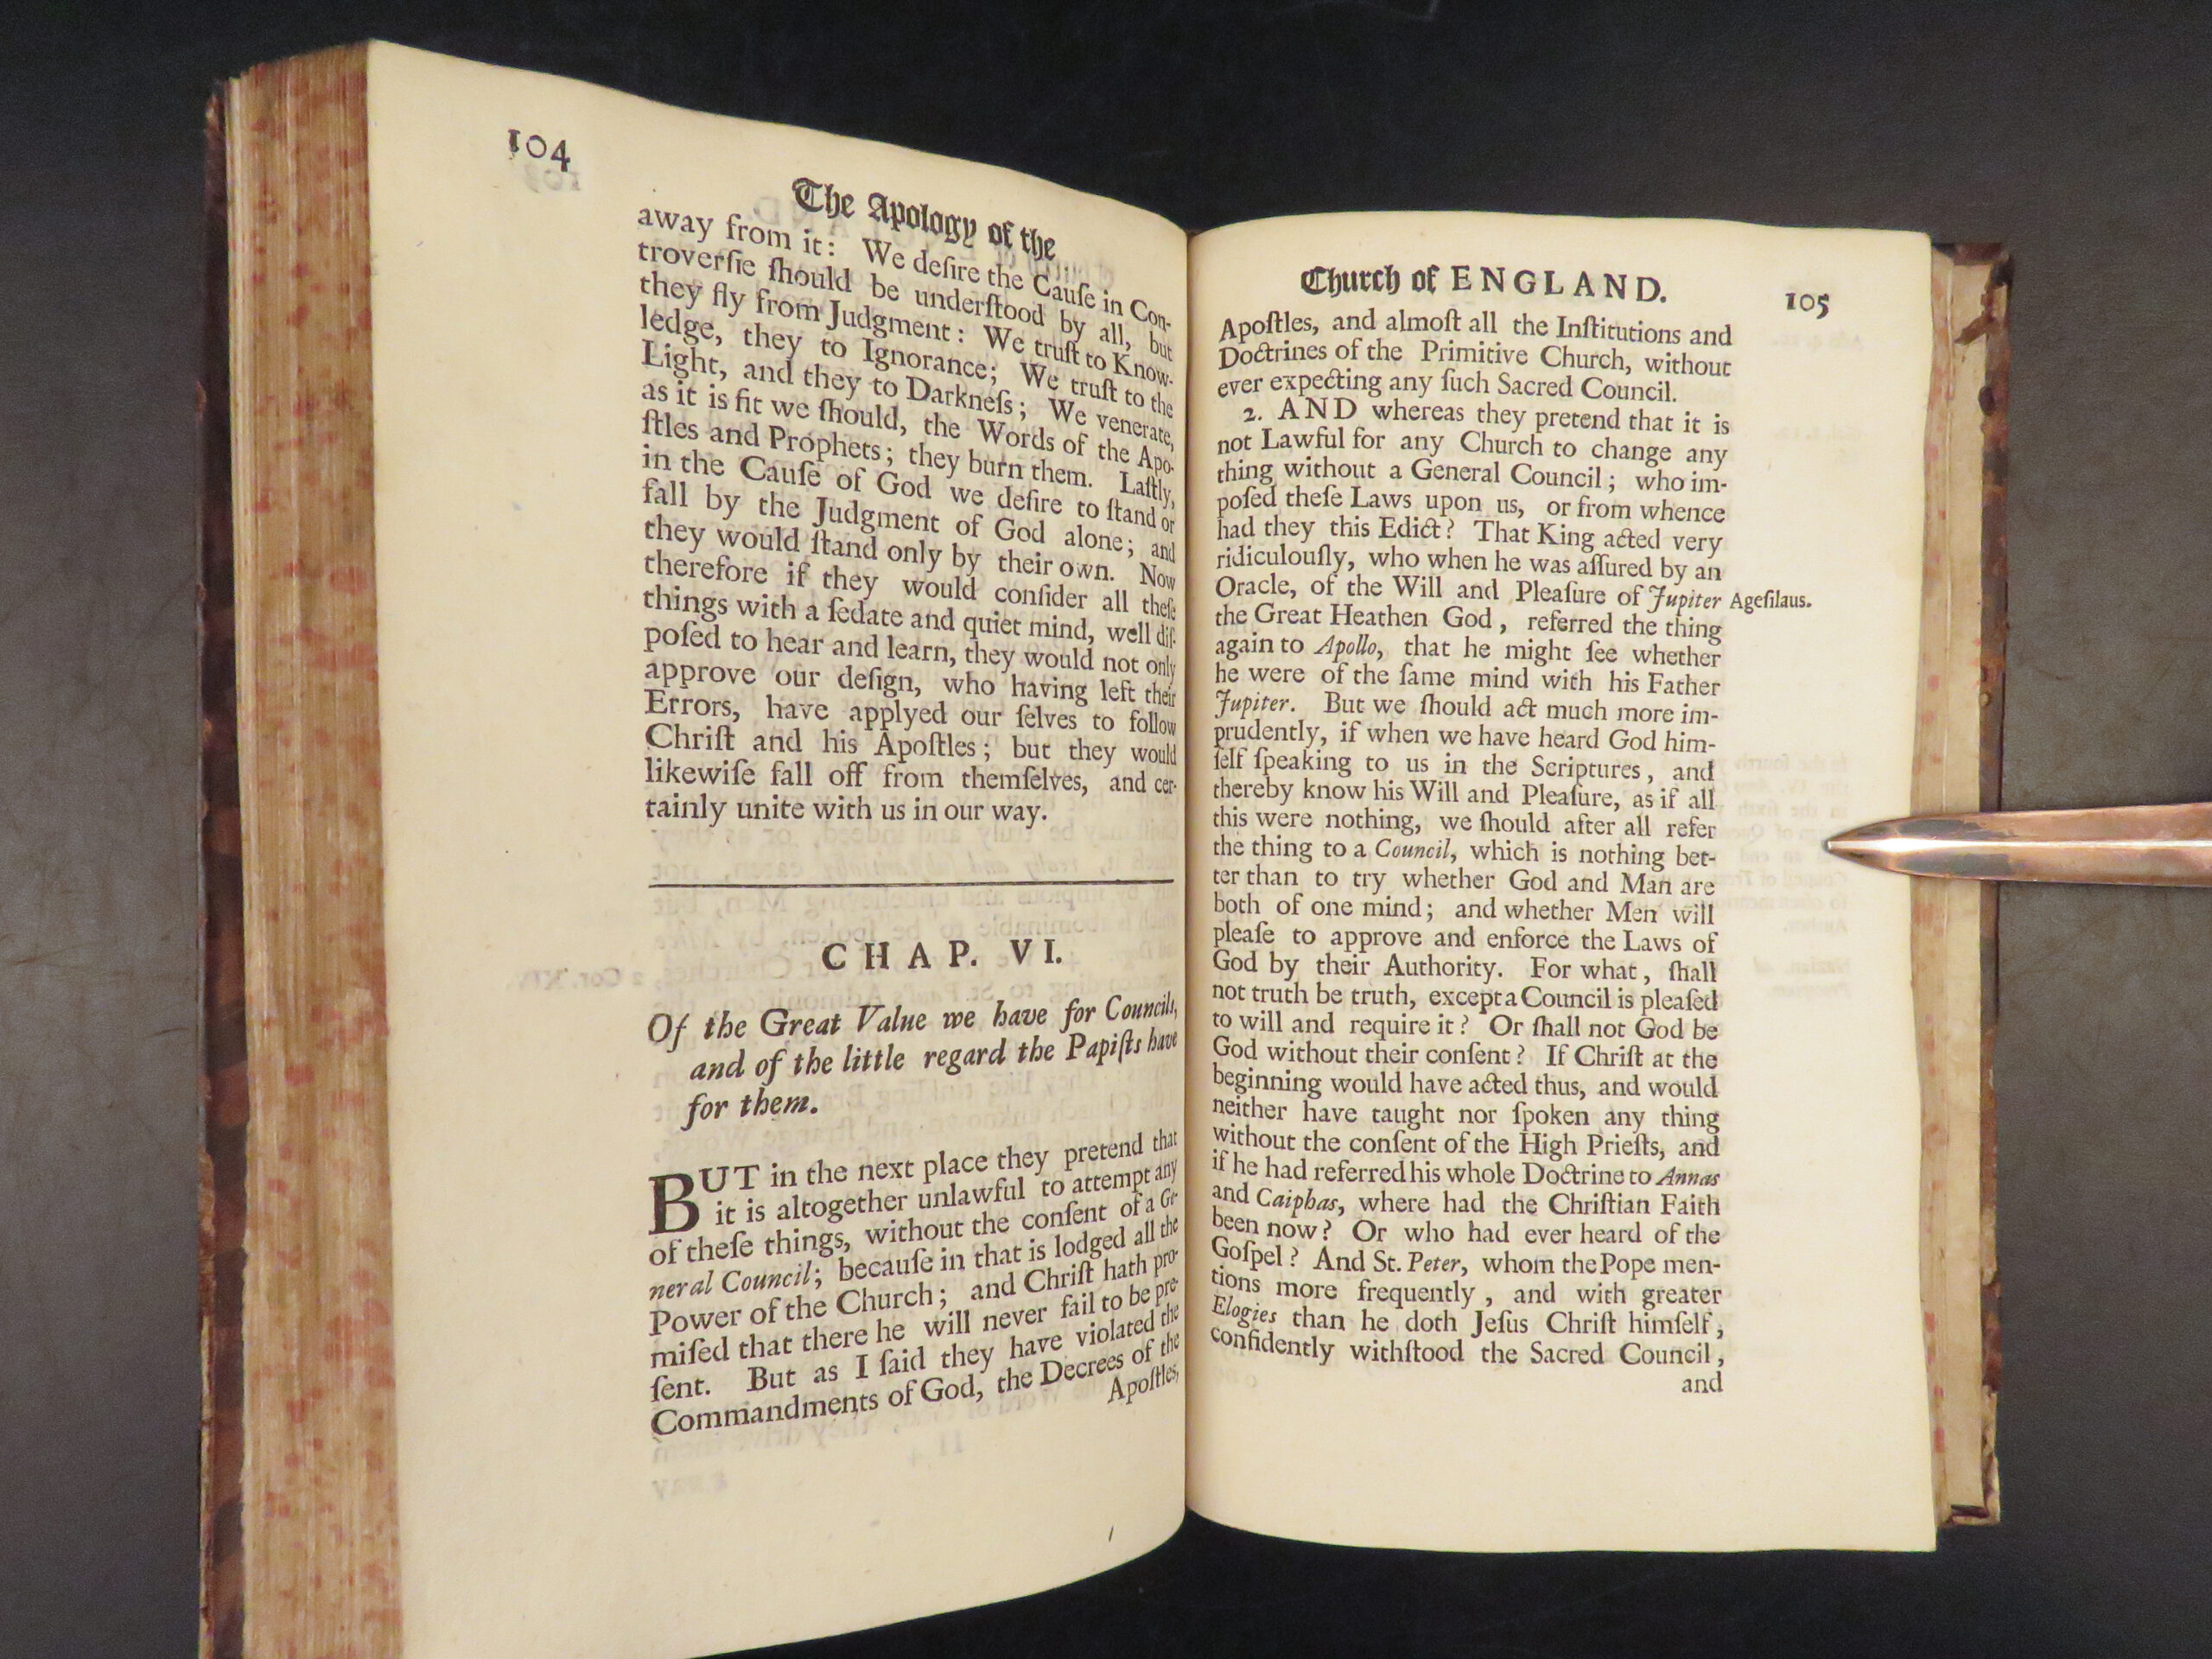 104
The Apology of the
away from it: We deſire the Cauſe in Con-
troverſie ſhould be underſtood by all, but
they fly from Judgment: We truſt to Know-
ledge, they to Ignorance; We truſt to the
Light, and they to Darkneſs; We venerate,
as it is fit we ſhould, the Words of the Apo-
ſtles and Prophets; they burn them. Laſtly,
in the Cauſe of God we deſire to ſtand or
fall by the Judgment of God alone; and
they would ſtand only by their own. Now
therefore if they would conſider all theſe
things with a ſedate and quiet mind, well diſ-
poſed to hear and learn, they would not only
approve our deſign, who having left their
Errors, have applyed our ſelves to follow
Chriſt and his Apoſtles; but they would
likewiſe fall off from themſelves, and cer-
tainly unite with us in our way.
CHAP. VI.
Of the Great Value we have for Councils,
and of the little regard the Papiſts have
for them.
BUT in the next place they pretend that
it is altogether unlawful to attempt any
of theſe things, without the conſent of a Ge-
neral Council; becauſe in that is lodged all the
Power of the Church; and Chriſt hath pro-
miſed that there he will never fail to be pre-
ſent. But as I ſaid they have violated the
Commandments of God, the Decrees of the
Apoſtles,
Church of ENGLAND.
105
Apoſtles, and almoſt all the Inſtitutions and
Doctrines of the Primitive Church, without
ever expecting any ſuch Sacred Council.
2. AND whereas they pretend that it is
not Lawful for any Church to change any
thing without a General Council; who im-
poſed theſe Laws upon us, or from whence
had they this Edict? That King acted very
ridiculouſly, who when he was aſſured by an
Oracle, of the Will and Pleaſure of Jupiter
Ageſilaus.
the Great Heathen God, referred the thing
again to Apollo, that he might ſee whether
he were of the ſame mind with his Father
Jupiter. But we ſhould act much more im-
prudently, if when we have heard God him-
ſelf ſpeaking to us in the Scriptures, and
thereby know his Will and Pleaſure, as if all
this were nothing, we ſhould after all refer
the thing to a Council, which is nothing bet-
ter than to try whether God and Man are
both of one mind; and whether Men will
pleaſe to approve and enforce the Laws of
God by their Authority. For what, ſhall
not truth be truth, except a Council is pleaſed
to will and require it? Or ſhall not God be
God without their conſent? If Chriſt at the
beginning would have acted thus, and would
neither have taught nor ſpoken any thing
without the conſent of the High Prieſts, and
if he had referred his whole Doctrine to Annas
and Caiphas, where had the Chriſtian Faith
been now? Or who had ever heard of the
Goſpel? And St. Peter, whom the Pope men-
tions more frequently, and with greater
Elogies than he doth Jeſus Chriſt himſelf,
confidently withſtood the Sacred Council,
and